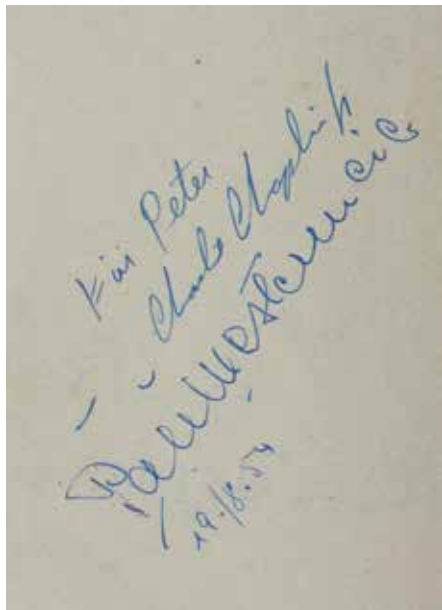 Für Peter
Charles Chaplin jr.
Paul Westermeier
19./8.54